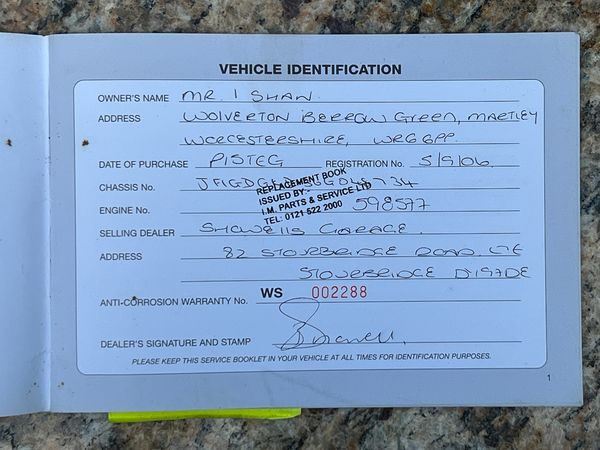 VEHICLE IDENTIFICATION
OWNER'S NAME MR. I SHAW.
ADDRESS WOLVERTON BERROW GREEN, MARTLEY
WORCESTERSHIRE, WR6 6PP.
DATE OF PURCHASE PISTEG REGISTRATION No. 5/9/06
CHASSIS No. 734
REPLACEMENT BOOK
ISSUED BY:-
I.M. PARTS & SERVICE LTD
TEL: 0121 522 2000
ENGINE No. 598577
SELLING DEALER SHOWELLS GARAGE.
ADDRESS 82 STOURBRIDGE ROAD, LYE
STOURBRIDGE
ANTI-CORROSION WARRANTY No. WS 002288
DEALER'S SIGNATURE AND STAMP
PLEASE KEEP THIS SERVICE BOOKLET IN YOUR VEHICLE AT ALL TIMES FOR IDENTIFICATION PURPOSES.
1